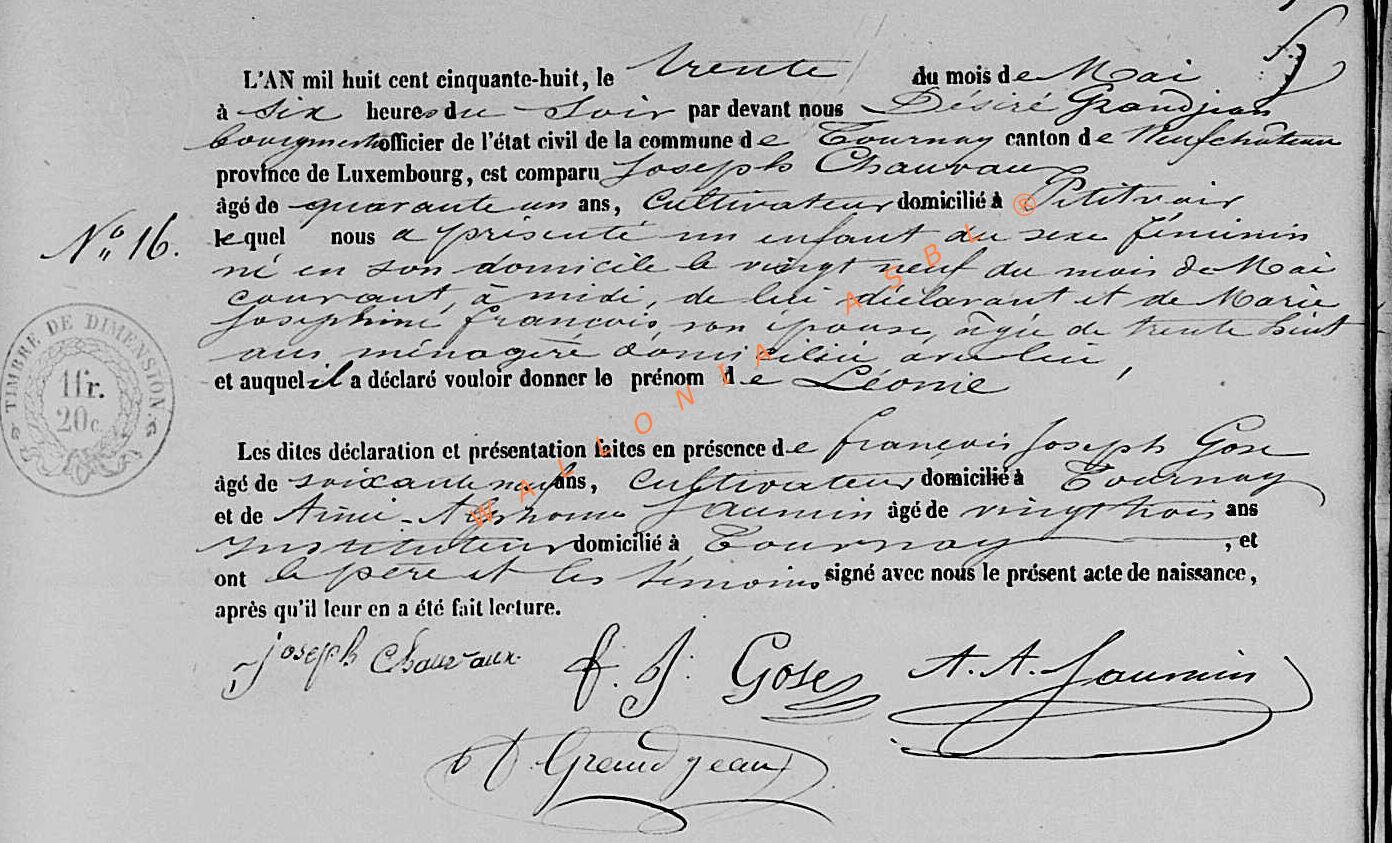 L'AN mil huit cent cinquante-huit, le trente du mois de Mai
à six heures du soir par devant nous Désiré Grandjean
bourgmestre officier de l'état civil de la commune de Tournay canton de Neufchâteau
province de Luxembourg, est comparu Joseph Chauvaux
âgé de quarante un ans, Cultivateur domicilié à Petitvoir
N° 16.
lequel nous a présenté un enfant du sexe féminin
né en son domicile le vingt neuf du mois de Mai
courant, à midi, de lui déclarant et de Marie
Josephine François, son épouse, âgée de trente huit
ans, ménagère domiciliée avec lui,
et auquel il a déclaré vouloir donner le prénom de Léonie
TIMBRE DE DIMENSION
1 fr.
20 c.
Les dites déclaration et présentation faites en présence de François Joseph Gose
âgé de soixante neuf ans, Cultivateur domicilié à Tournay
et de Aimé-Alphonse Jaumin âgé de vingt trois ans
Instituteur domicilié à Tournay, et
ont le père et les témoins signé avec nous le présent acte de naissance,
après qu'il leur en a été fait lecture.
Joseph Chauvaux
F. J. Gose
A. A. Jaumin
D. Grandjean
WALLONIA ASBL ®